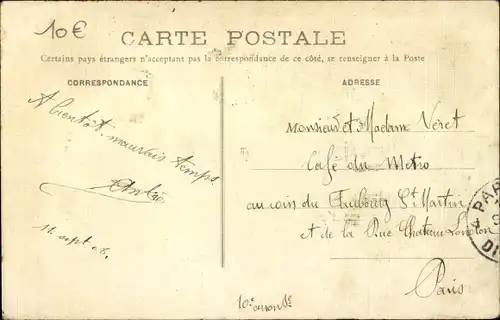 10€
CARTE POSTALE
Certains pays étrangers n'acceptant pas la correspondance de ce côté, se renseigner à la Poste
CORRESPONDANCE
A bientôt. mauvais temps.
14 sept 08.
ADRESSE
Monsieur et Madame Veret
Café du Metro
au coin du Faubourg St Martin
et de la Rue Chateau Landon
Paris
10e arrondt
PAR